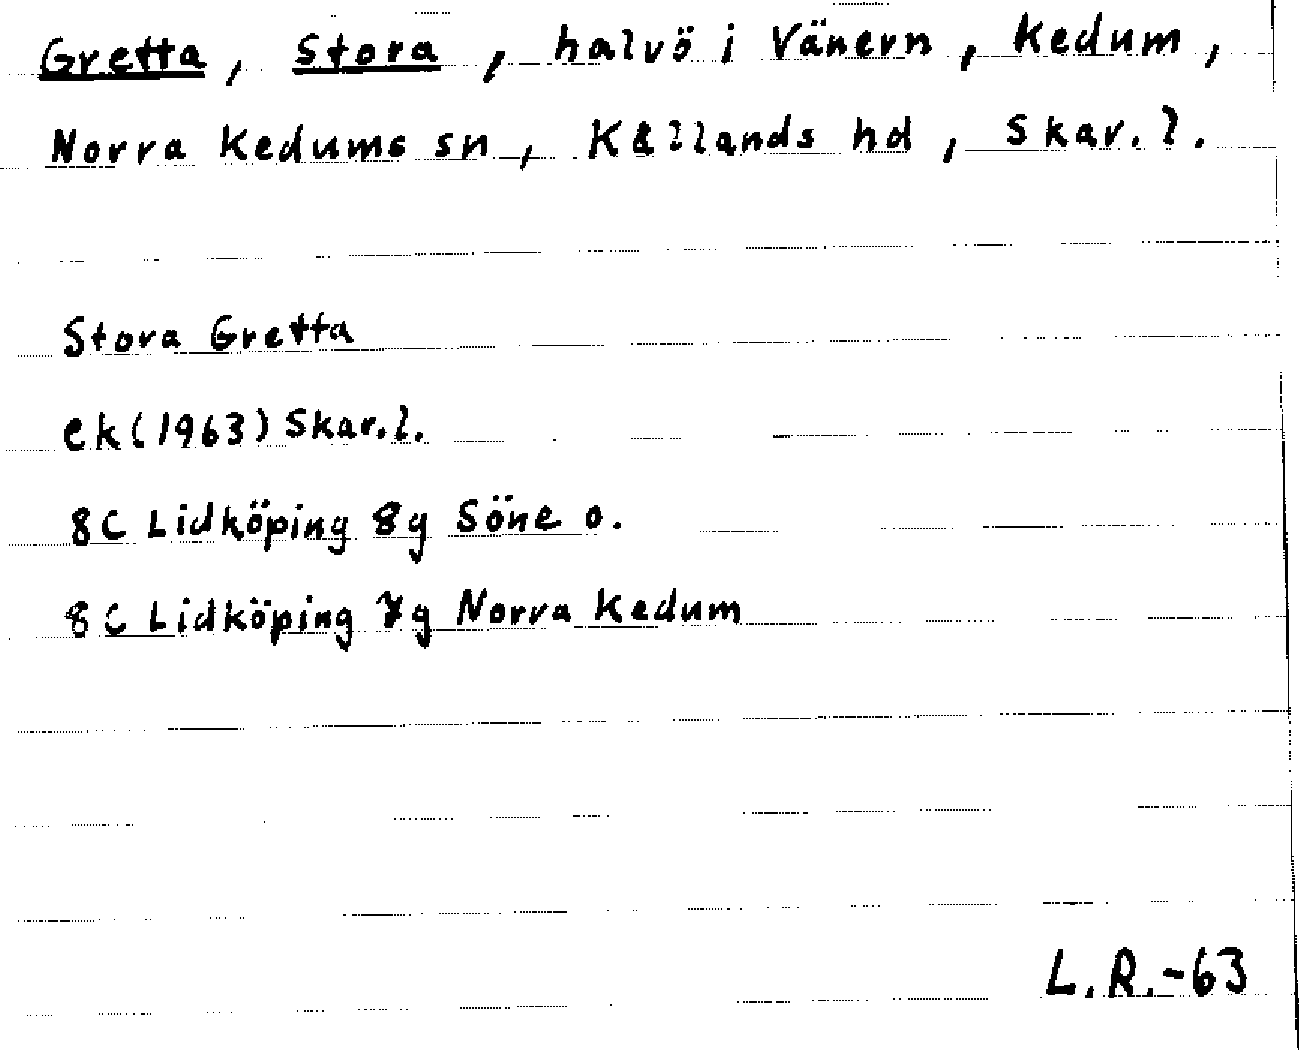 Gretta, Stora, halvö i Vänern, Kedum,
Norra Kedums sn, Kållands hd, Skar. l.
Stora Gretta
ek (1963) Skar. l.
8C Lidköping 8g Söne o.
8C Lidköping 7g Norra Kedum
L.R.-63